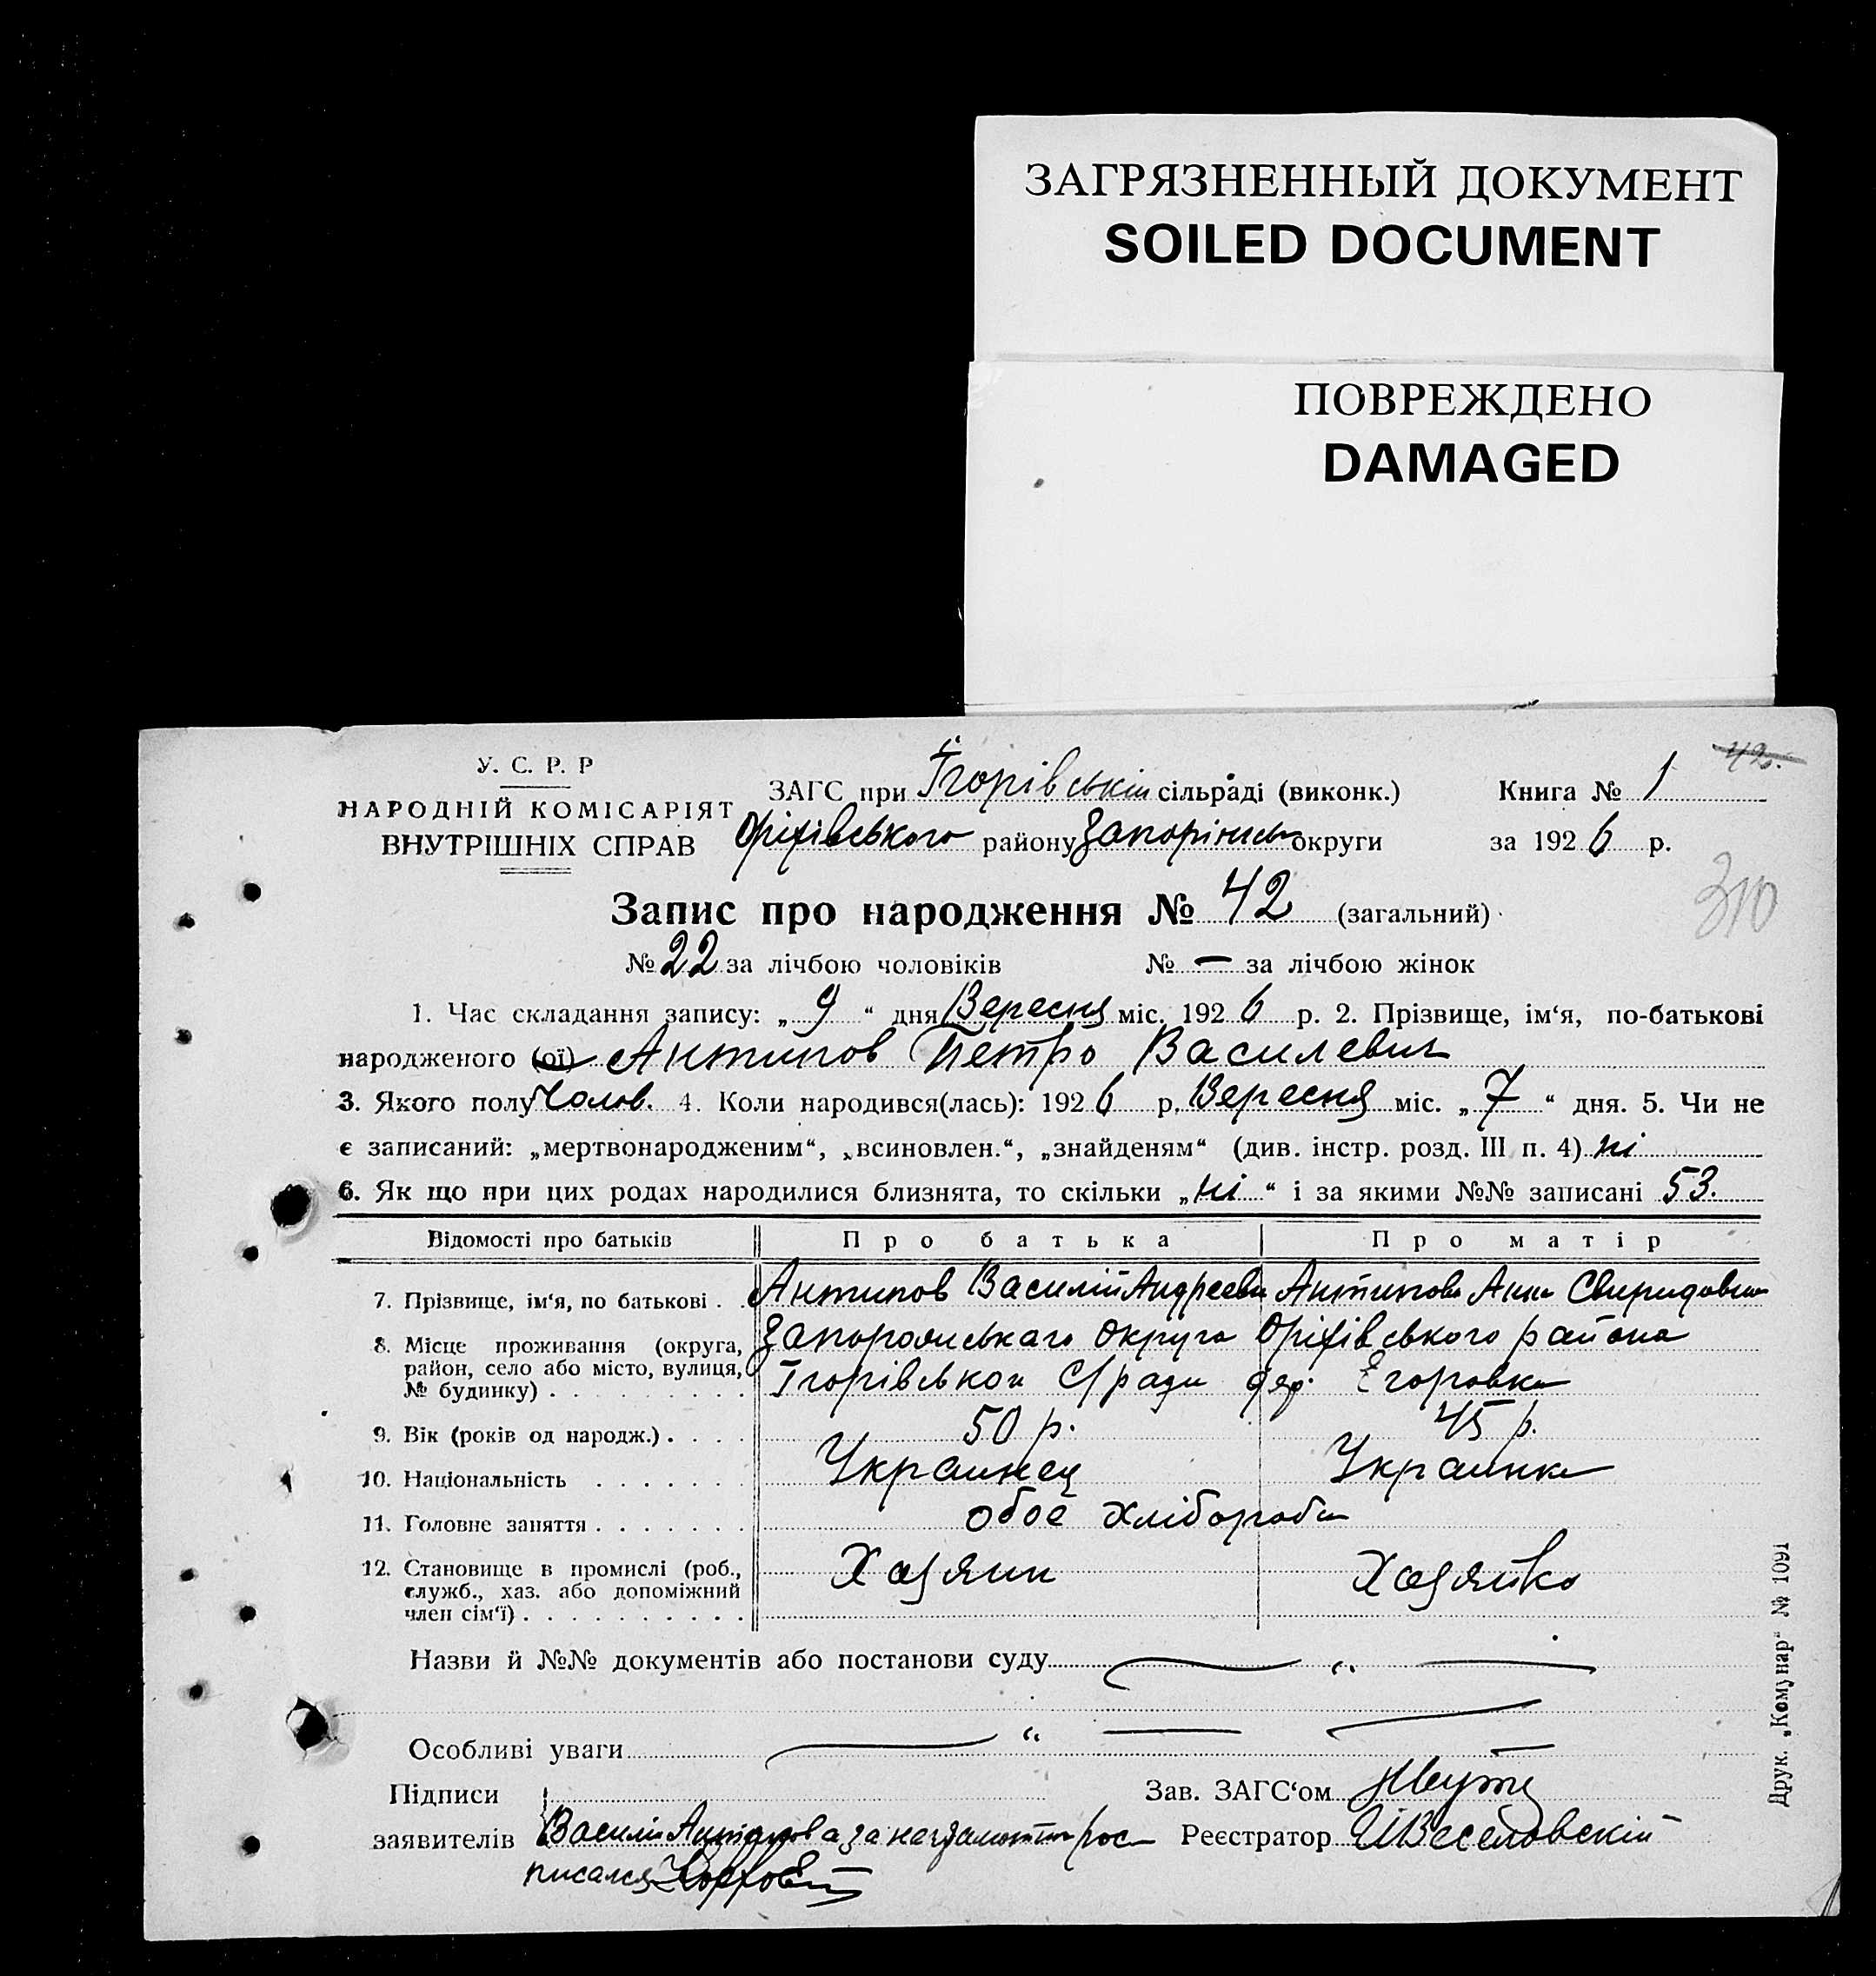 ЗАГРЯЗНЕННЫЙ ДОКУМЕНТ
SOILED DOCUMENT
ПОВРЕЖДЕНО
DAMAGED
42.
У. С. Р. Р
НАРОДНІЙ КОМІСАРІЯТ
ВНУТРІШНІХ СПРАВ
ЗАГС при Їгорівській сільраді (виконк.) Книга № 1
Оріхівського району Запоріжськ округи за 1926 р.
310
Запис про народження № 42 (загальний)
№ 22 за лічбою чоловіків № — за лічбою жінок
1. Час складання запису: „9“ дня Вересня міс. 1926 р. 2. Прізвище, ім‘я, по-батькові
народженого (ої) Антипов Петро Василевич
3. Якого полу Чолов. 4. Коли народився(лась): 1926 р. Вересня міс. „7“ дня. 5. Чи не
є записаний: „мертвонародженим“, „всиновлен.“, „знайденям“ (див. інстр. розд. III п. 4) ні
6. Як що при цих родах народилися близнята, то скільки „ні“ і за якими №№ записані 53.
Відомості про батьків Про батька Про матір
7. Прізвище, ім‘я, по батькові . . Антипов Василій Андреевич Антипова Анна Свиридовна
8. Місце проживання (округа, район, село або місто, вулиця, № будинку) . . . . . . . . .
Запорожськаго округа Оріхівського района
Їгорівськой С/ради дер. Егоровка
9. Вік (років од народж.) . . . . 50 р. 45 р.
10. Національність . . . . . . . Украинец Украинка
11. Головне заняття . . . . . . . обоє хлібороби
12. Становище в промислі (роб., служб., хаз. або допоміжний член сім‘ї) . . . . . . . . . . Хазяин Хазяйка
Назви й №№ документів або постанови суду — „ —
Особливі уваги — „ —
Підписи Зав. ЗАГС‘ом
заявителів Василій Антипов а за неграмотн рос Реєстратор И Веселовскій
писался
Друк. „Комунар“ № 1091